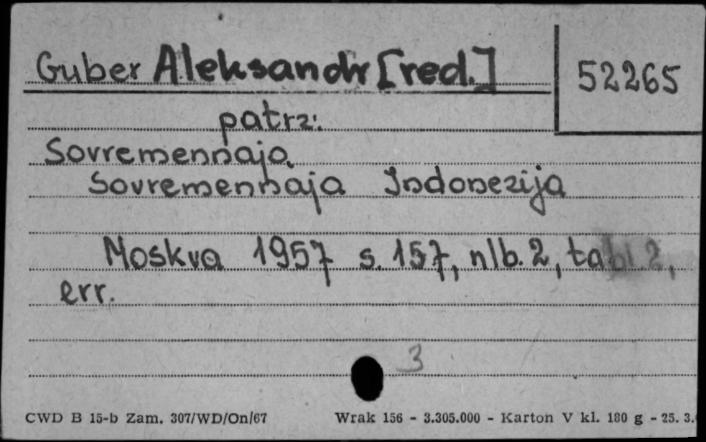 Guber Aleksandr [red.]
52265
patrz:
Sovremennaja
Sovremennaja Indonezija
Moskva 1957 s. 157, nlb. 2, tabl. 2,
err.
3
CWD B 15-b Zam. 307/WD/On/67 Wrak 156 - 3.305.000 - Karton V kl. 180 g - 25. 3.